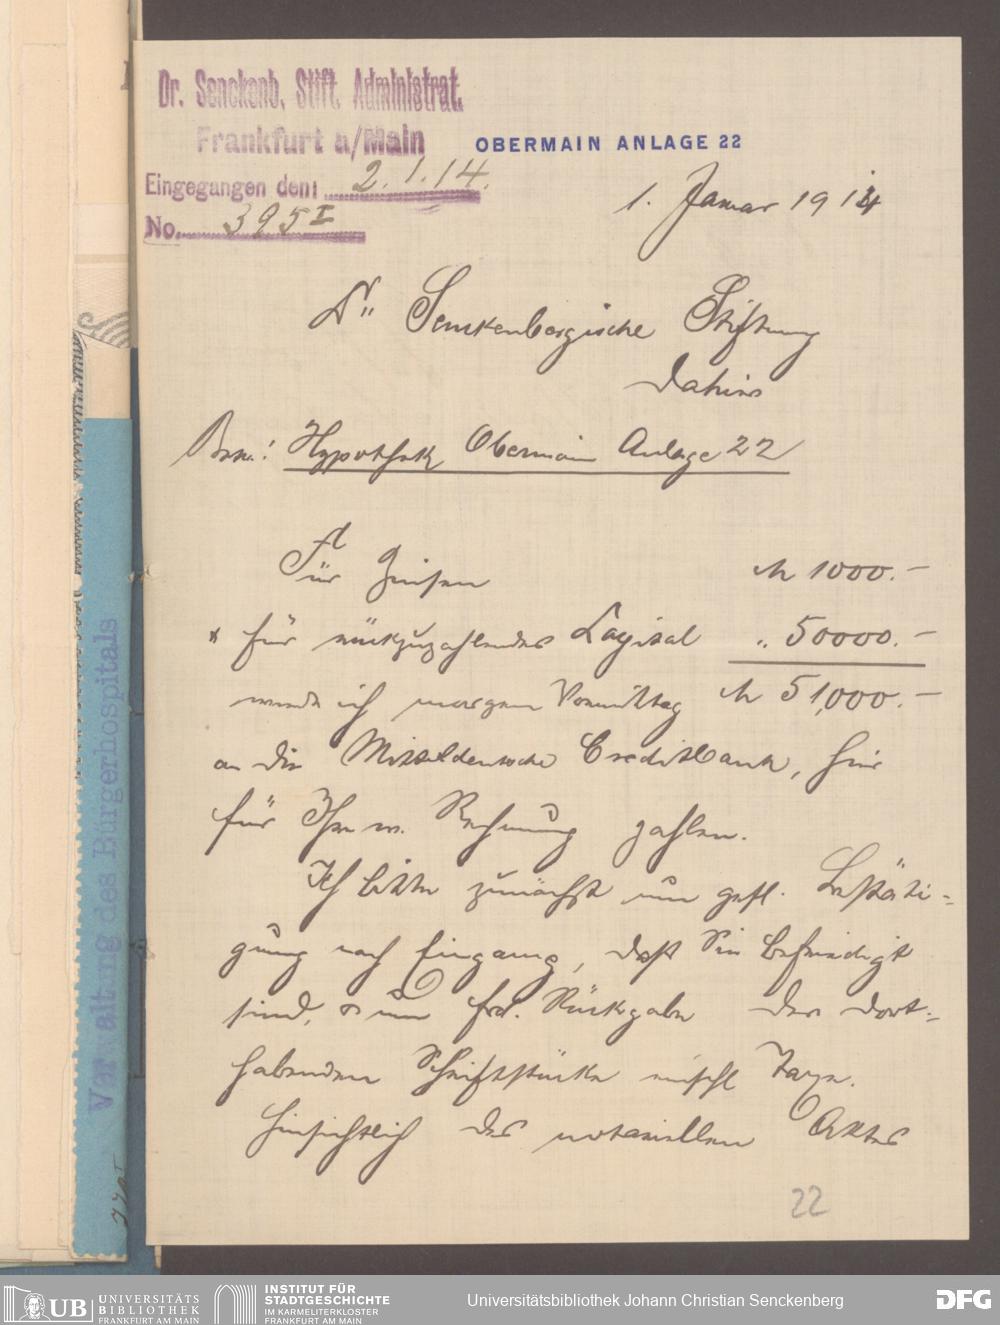 Dr. Senckenb. Stift. Administrat.
Frankfurt a/Main
Eingegangen den: 2.1.14.
No. 395 I
OBERMAIN ANLAGE 22
1. Januar 1914
Dr. Senckenbergische Stiftung
Dahier
Betr.: Hypothek Obermain Anlage 22
Für Zinsen M 1000.–
" für rückzuzahlendes Capital " 50000.–
werde ich morgen Vormittag M 51,000.–
an die Mitteldeutsche Creditbank, hier
für Ihre w. Rechnung zahlen.
Ich bitte zunächst um gefl. Bestäti-
gung nach Eingang, daß Sie befriedigt
sind, & um frd. Rückgabe der dort-
habenden Schriftstücke einschl Taxe.
Hinsichtlich des notariellen Aktes
22
Verwaltung des Bürgerhospitals
UB UNIVERSITÄTS
BIBLIOTHEK
FRANKFURT AM MAIN
INSTITUT FÜR
STADTGESCHICHTE
IM KARMELITERKLOSTER
FRANKFURT AM MAIN
Universitätsbibliothek Johann Christian Senckenberg
DFG